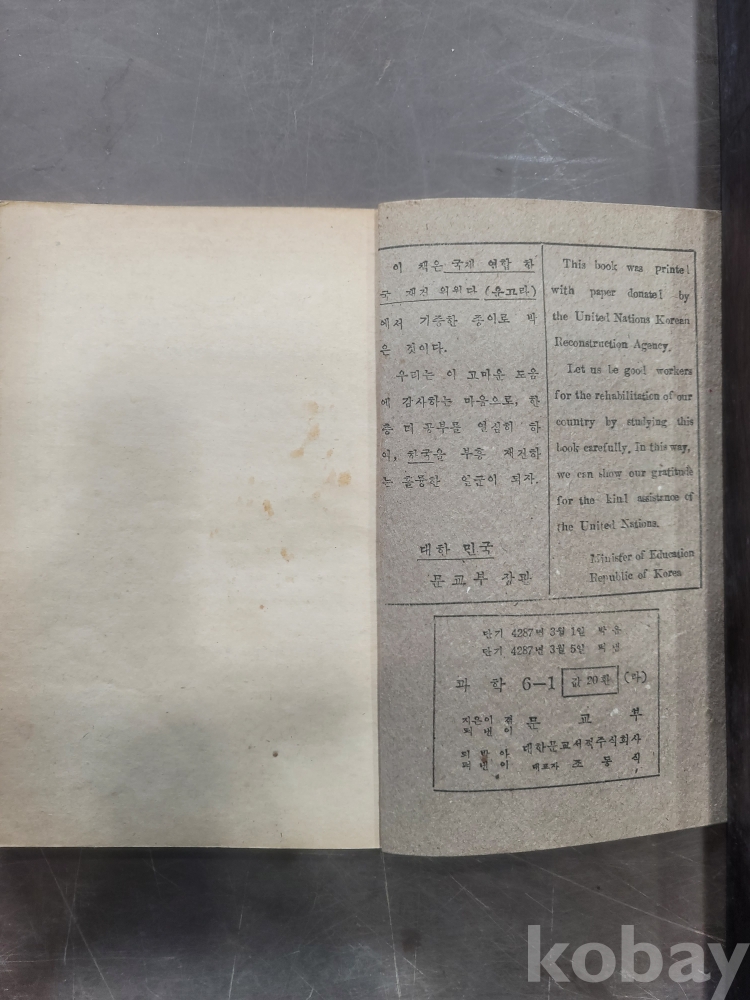 이 책은 국제 연합 한
국 재건 위원단 (운끄라)
에서 기증한 종이로 박
은 것이다.
우리는 이 고마운 도움
에 감사하는 마음으로, 한
층 더 공부를 열심히 하
여, 한국을 부흥 재건하
는 훌륭한 일군이 되자.
대한 민국
문교부 장관
This book was printed
with paper donated by
the United Nations Korean
Reconstruction Agency.
Let us be good workers
for the rehabilitation of our
country by studying this
book carefully. In this way,
we can show our gratitude
for the kind assistance of
the United Nations.
Minister of Education
Republic of Korea
단기 4287년 3월 1일 박음
단기 4287년 3월 5일 펴냄
과 학 6—1 값 20환
지은이 겸
펴낸이 문 교 부
박아
펴낸이 대한문교서적주식회사
대표자 조 동 식
kobay